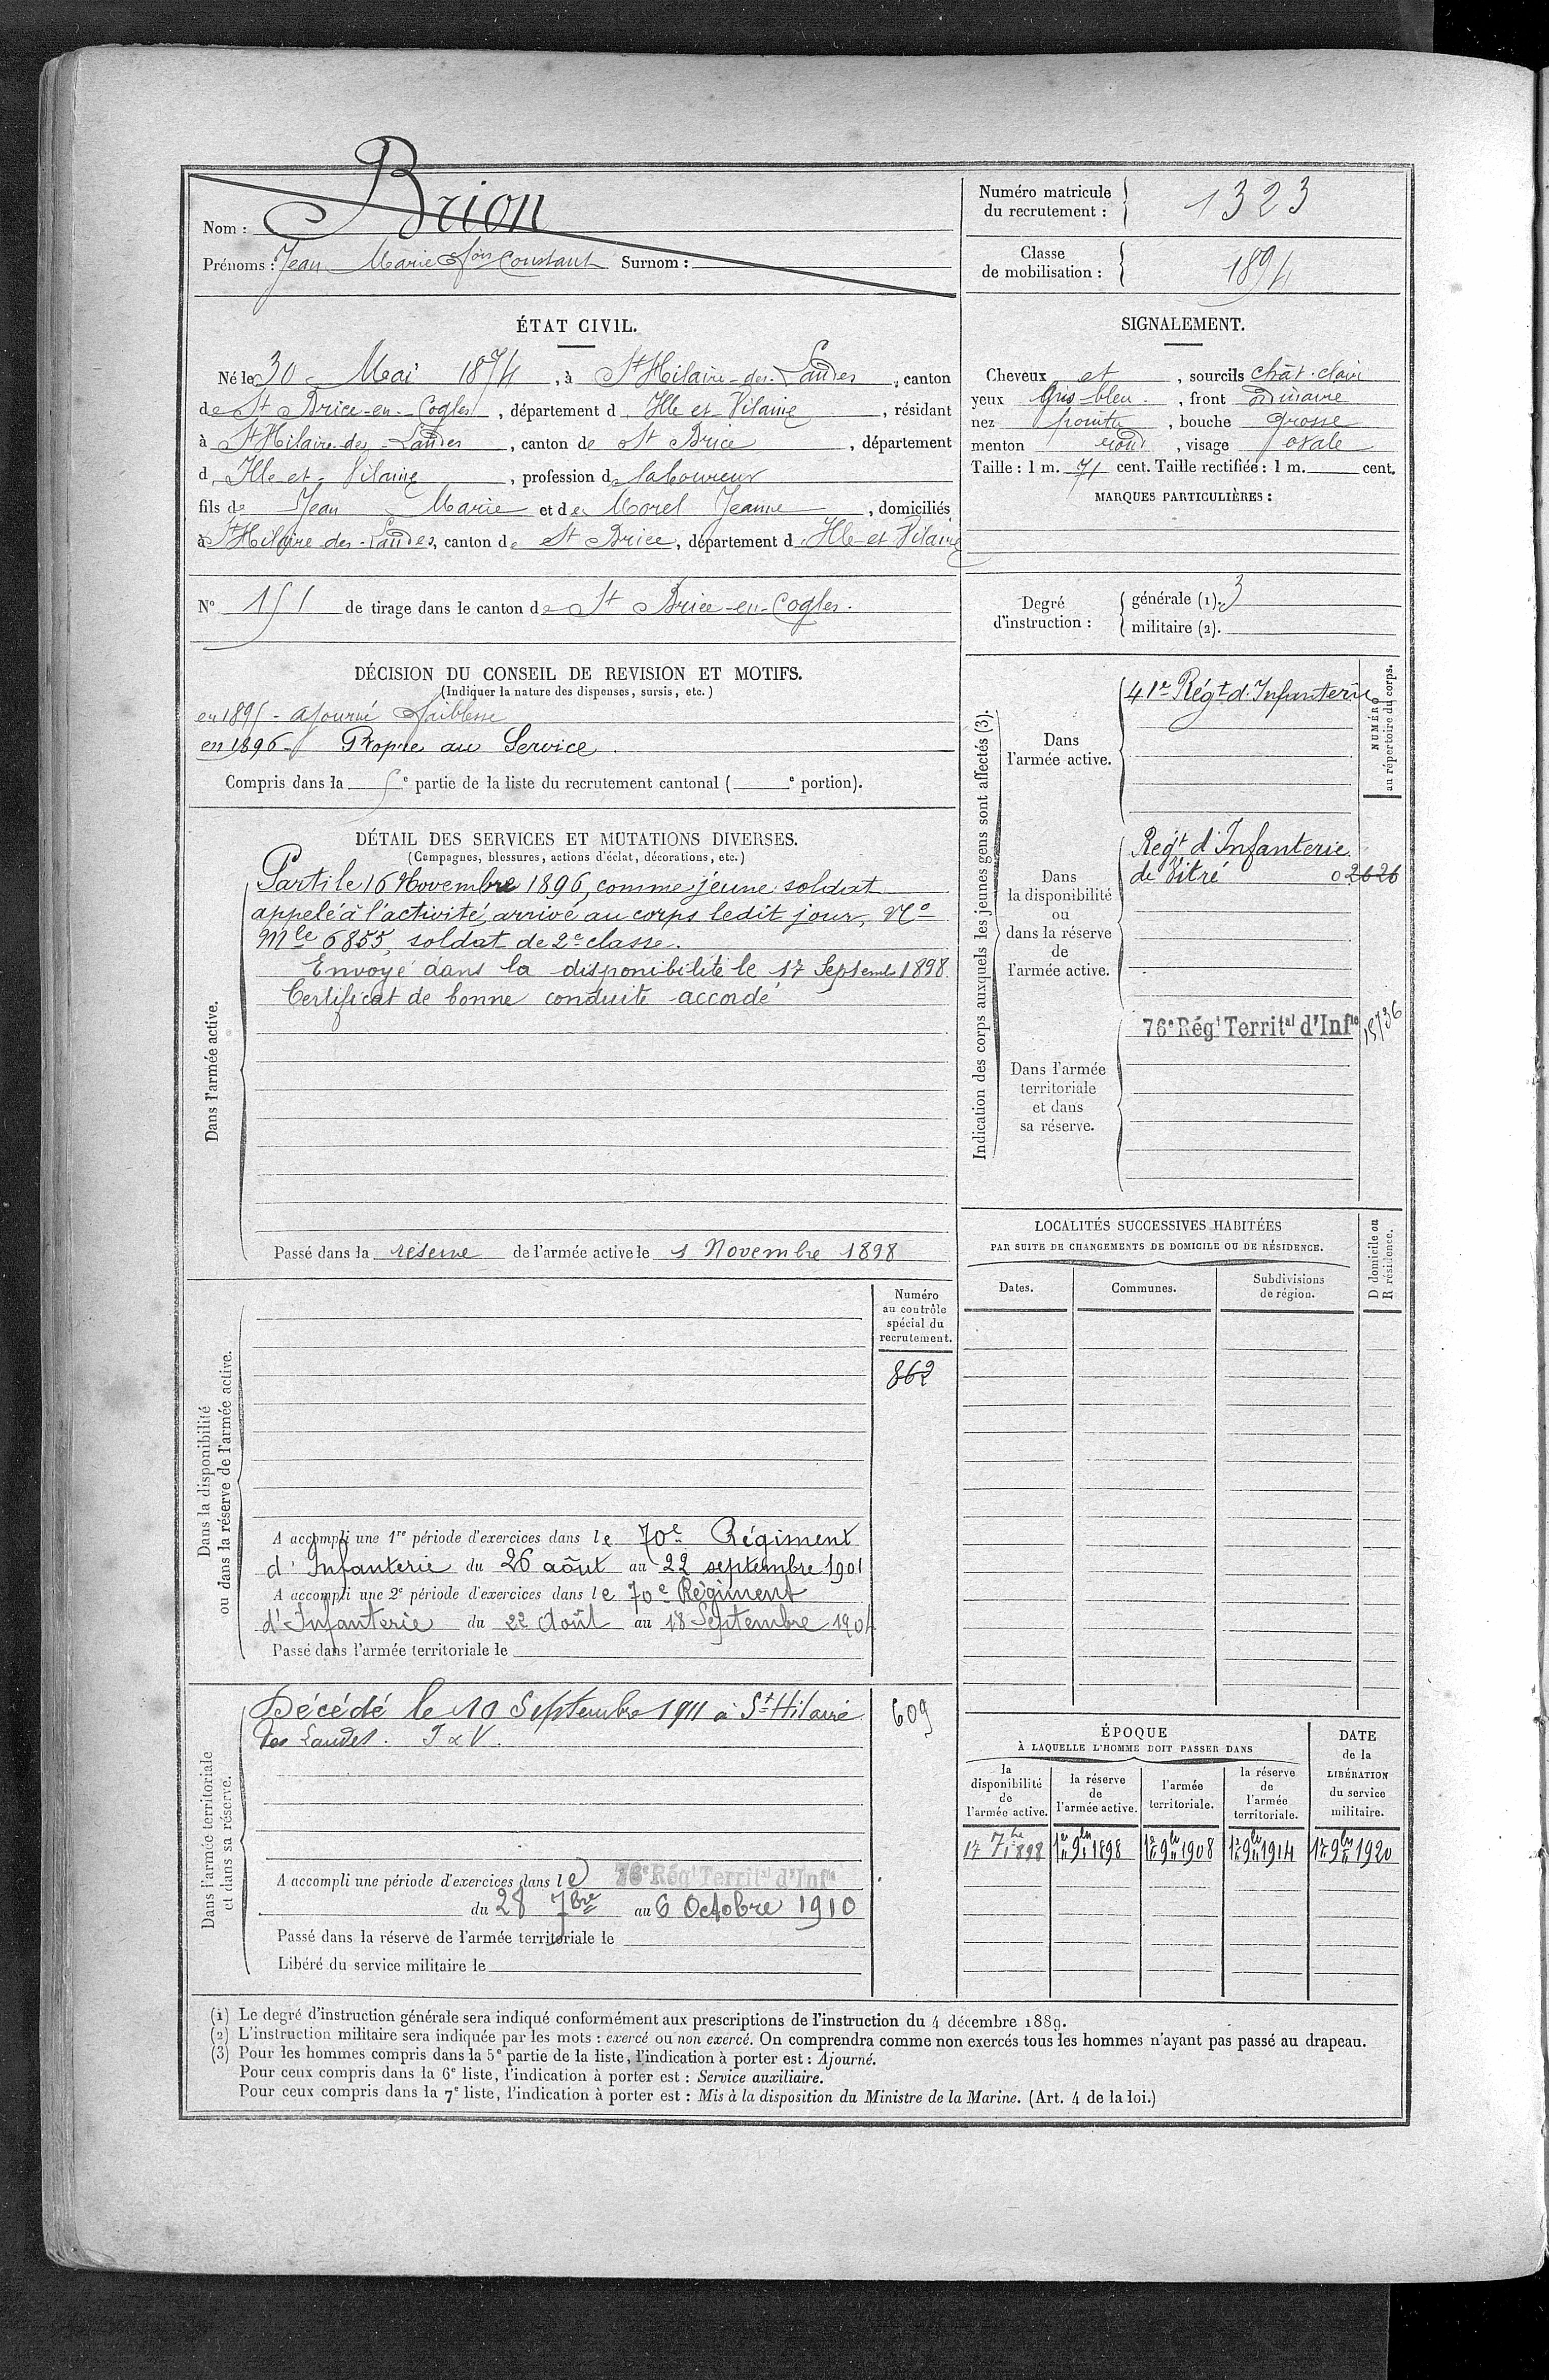 Nom : Brion
Prénoms : Jean Marie fois Constant Surnom :
Numéro matricule
du recrutement : 1323
Classe
de mobilisation : 1894
ÉTAT CIVIL.
Né le 30 Mai 1874, à St Hilaire-des-Landes, canton
de St Brice-en-Cogles, département d'Ille et Vilaine, résidant
à St Hilaire-des-Landes, canton de St Brice, département
d'Ille et Vilaine, profession de laboureur
fils de Jean Marie et de Morel Jeanne, domiciliés
à St Hilaire des-Landes, canton de St Brice, département d'Ille-et-Vilaine
SIGNALEMENT.
Cheveux et, sourcils chât-clair
yeux Gris-bleu, front ordinaire
nez pointu, bouche grosse
menton rond, visage ovale
Taille : 1 m. 71 cent. Taille rectifiée : 1 m. cent.
MARQUES PARTICULIÈRES :
N° 151 de tirage dans le canton de St Brice-en-Cogles.
Degré
d'instruction :
générale (1). 3
militaire (2).
DÉCISION DU CONSEIL DE REVISION ET MOTIFS.
(Indiquer la nature des dispenses, sursis, etc.)
en 1895 - ajourné faiblesse
en 1896 - Propre au Service.
Compris dans la 5e partie de la liste du recrutement cantonal ( e portion).
DÉTAIL DES SERVICES ET MUTATIONS DIVERSES.
(Campagnes, blessures, actions d'éclat, décorations, etc.)
Dans l'armée active.
Parti le 16 Novembre 1896, comme jeune soldat
appelé à l'activité, arrivé au corps ledit jour, No
Mle 6855, soldat de 2e classe.
Envoyé dans la disponibilité le 17 Septemb 1898.
Certificat de bonne conduite accordé
Passé dans la réserve de l'armée active le 1 Novembre 1898
Indication des corps auxquels les jeunes gens sont affectés (3).
NUMÉRO
au répertoire du corps.
Dans
l'armée active.
41e Régt d'Infanterie
Dans
la disponibilité
ou
dans la réserve
de
l'armée active.
Régt d'Infanterie
de Vitré 02626
Dans l'armée
territoriale
et dans
sa réserve.
76e Régt Territal d'Infie 15736
LOCALITÉS SUCCESSIVES HABITÉES
PAR SUITE DE CHANGEMENTS DE DOMICILE OU DE RÉSIDENCE.
Dates.
Communes.
Subdivisions
de région.
D domicile ou
R résidence.
Dans la disponibilité
ou dans la réserve de l'armée active.
Numéro
au contrôle
spécial du
recrutement.
862
A accompli une 1re période d'exercices dans le 70e Régiment
d'Infanterie du 26 août au 22 septembre 1901
A accompli une 2e période d'exercices dans le 70e Régiment
d'Infanterie du 22 Août au 18 Septembre 1904
Passé dans l'armée territoriale le
Dans l'armée territoriale
et dans sa réserve.
Décédé le 10 Septembre 1911 à St Hilaire
des Landes. I & V.
609
A accompli une période d'exercices dans le 76e Régt Territal d'Infie
du 28 7bre au 6 Octobre 1910
Passé dans la réserve de l'armée territoriale le
Libéré du service militaire le
ÉPOQUE
À LAQUELLE L'HOMME DOIT PASSER DANS
la
disponibilité
de
l'armée active.
la réserve
de
l'armée active.
l'armée
territoriale.
la réserve
de
l'armée
territoriale.
DATE
de la
LIBÉRATION
du service
militaire.
17 7bre 1898 1er 9bre 1898 1er 9bre 1908 1er 9bre 1914 1er 9bre 1920
(1) Le degré d'instruction générale sera indiqué conformément aux prescriptions de l'instruction du 4 décembre 1889.
(2) L'instruction militaire sera indiquée par les mots : exercé ou non exercé. On comprendra comme non exercés tous les hommes n'ayant pas passé au drapeau.
(3) Pour les hommes compris dans la 5e partie de la liste, l'indication à porter est : Ajourné.
Pour ceux compris dans la 6e liste, l'indication à porter est : Service auxiliaire.
Pour ceux compris dans la 7e liste, l'indication à porter est : Mis à la disposition du Ministre de la Marine. (Art. 4 de la loi.)